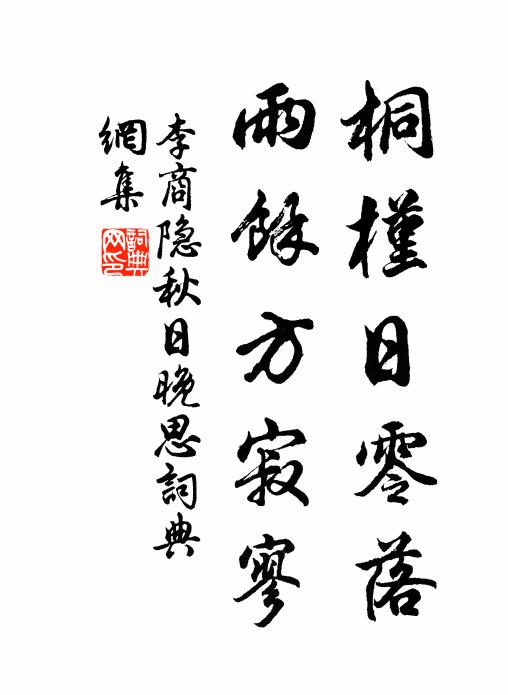 桐槿日零落
雨餘方寂寥
李商隐秋日晚思詞典
網集
詞典网印